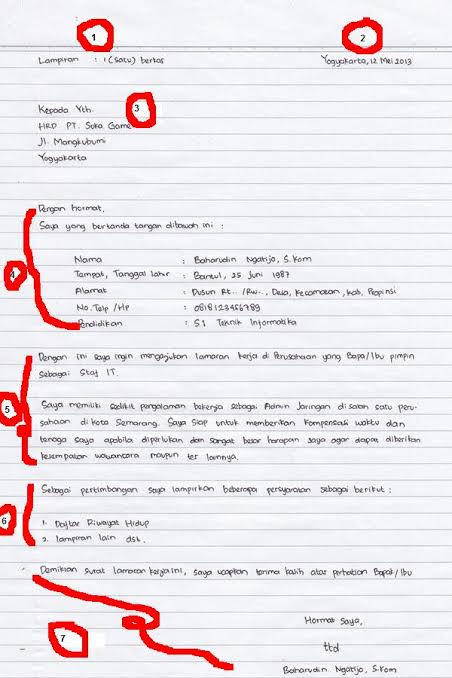 1
2
Lampiran : 1 (satu) berkas Yogyakarta, 12 Mei 2013
3
Kepada Yth.
HRD PT. Suka Game
Jl. Mangkubumi
Yogyakarta
Dengan hormat,
Saya yang bertanda tangan dibawah ini :
Nama : Baharudin Ngatijo, S.Kom
Tempat, Tanggal lahir : Bantul, 25 Juni 1987
4
Alamat : Dusun Rt.. /Rw.., Desa, Kecamatan, Kab, Propinsi
No. Telp /Hp : 0818123456789
Pendidikan : S1 Teknik Informatika
Dengan ini saya ingin mengajukan lamaran kerja di Perusahaan yang Bapa/Ibu pimpin
sebagai Staf IT.
5
Saya memiliki sedikit pengalaman bekerja sebagai Admin Jaringan di salah satu peru-
sahaan di kota Semarang. Saya siap untuk memberikan kompensasi waktu dan
tenaga saya apabila diperlukan dan sangat besar harapan saya agar dapat diberikan
kesempatan wawancara maupun tes lainnya.
Sebagai pertimbangan saya lampirkan beberapa persyaratan sebagai berikut :
6
1. Daftar Riwayat Hidup
2. lampiran lain dst.
Demikian surat lamaran kerja ini, saya ucapkan terima kasih atas perhatian Bapak/Ibu
Hormat Saya,
7
ttd
Baharudin Ngatijo, S.Kom